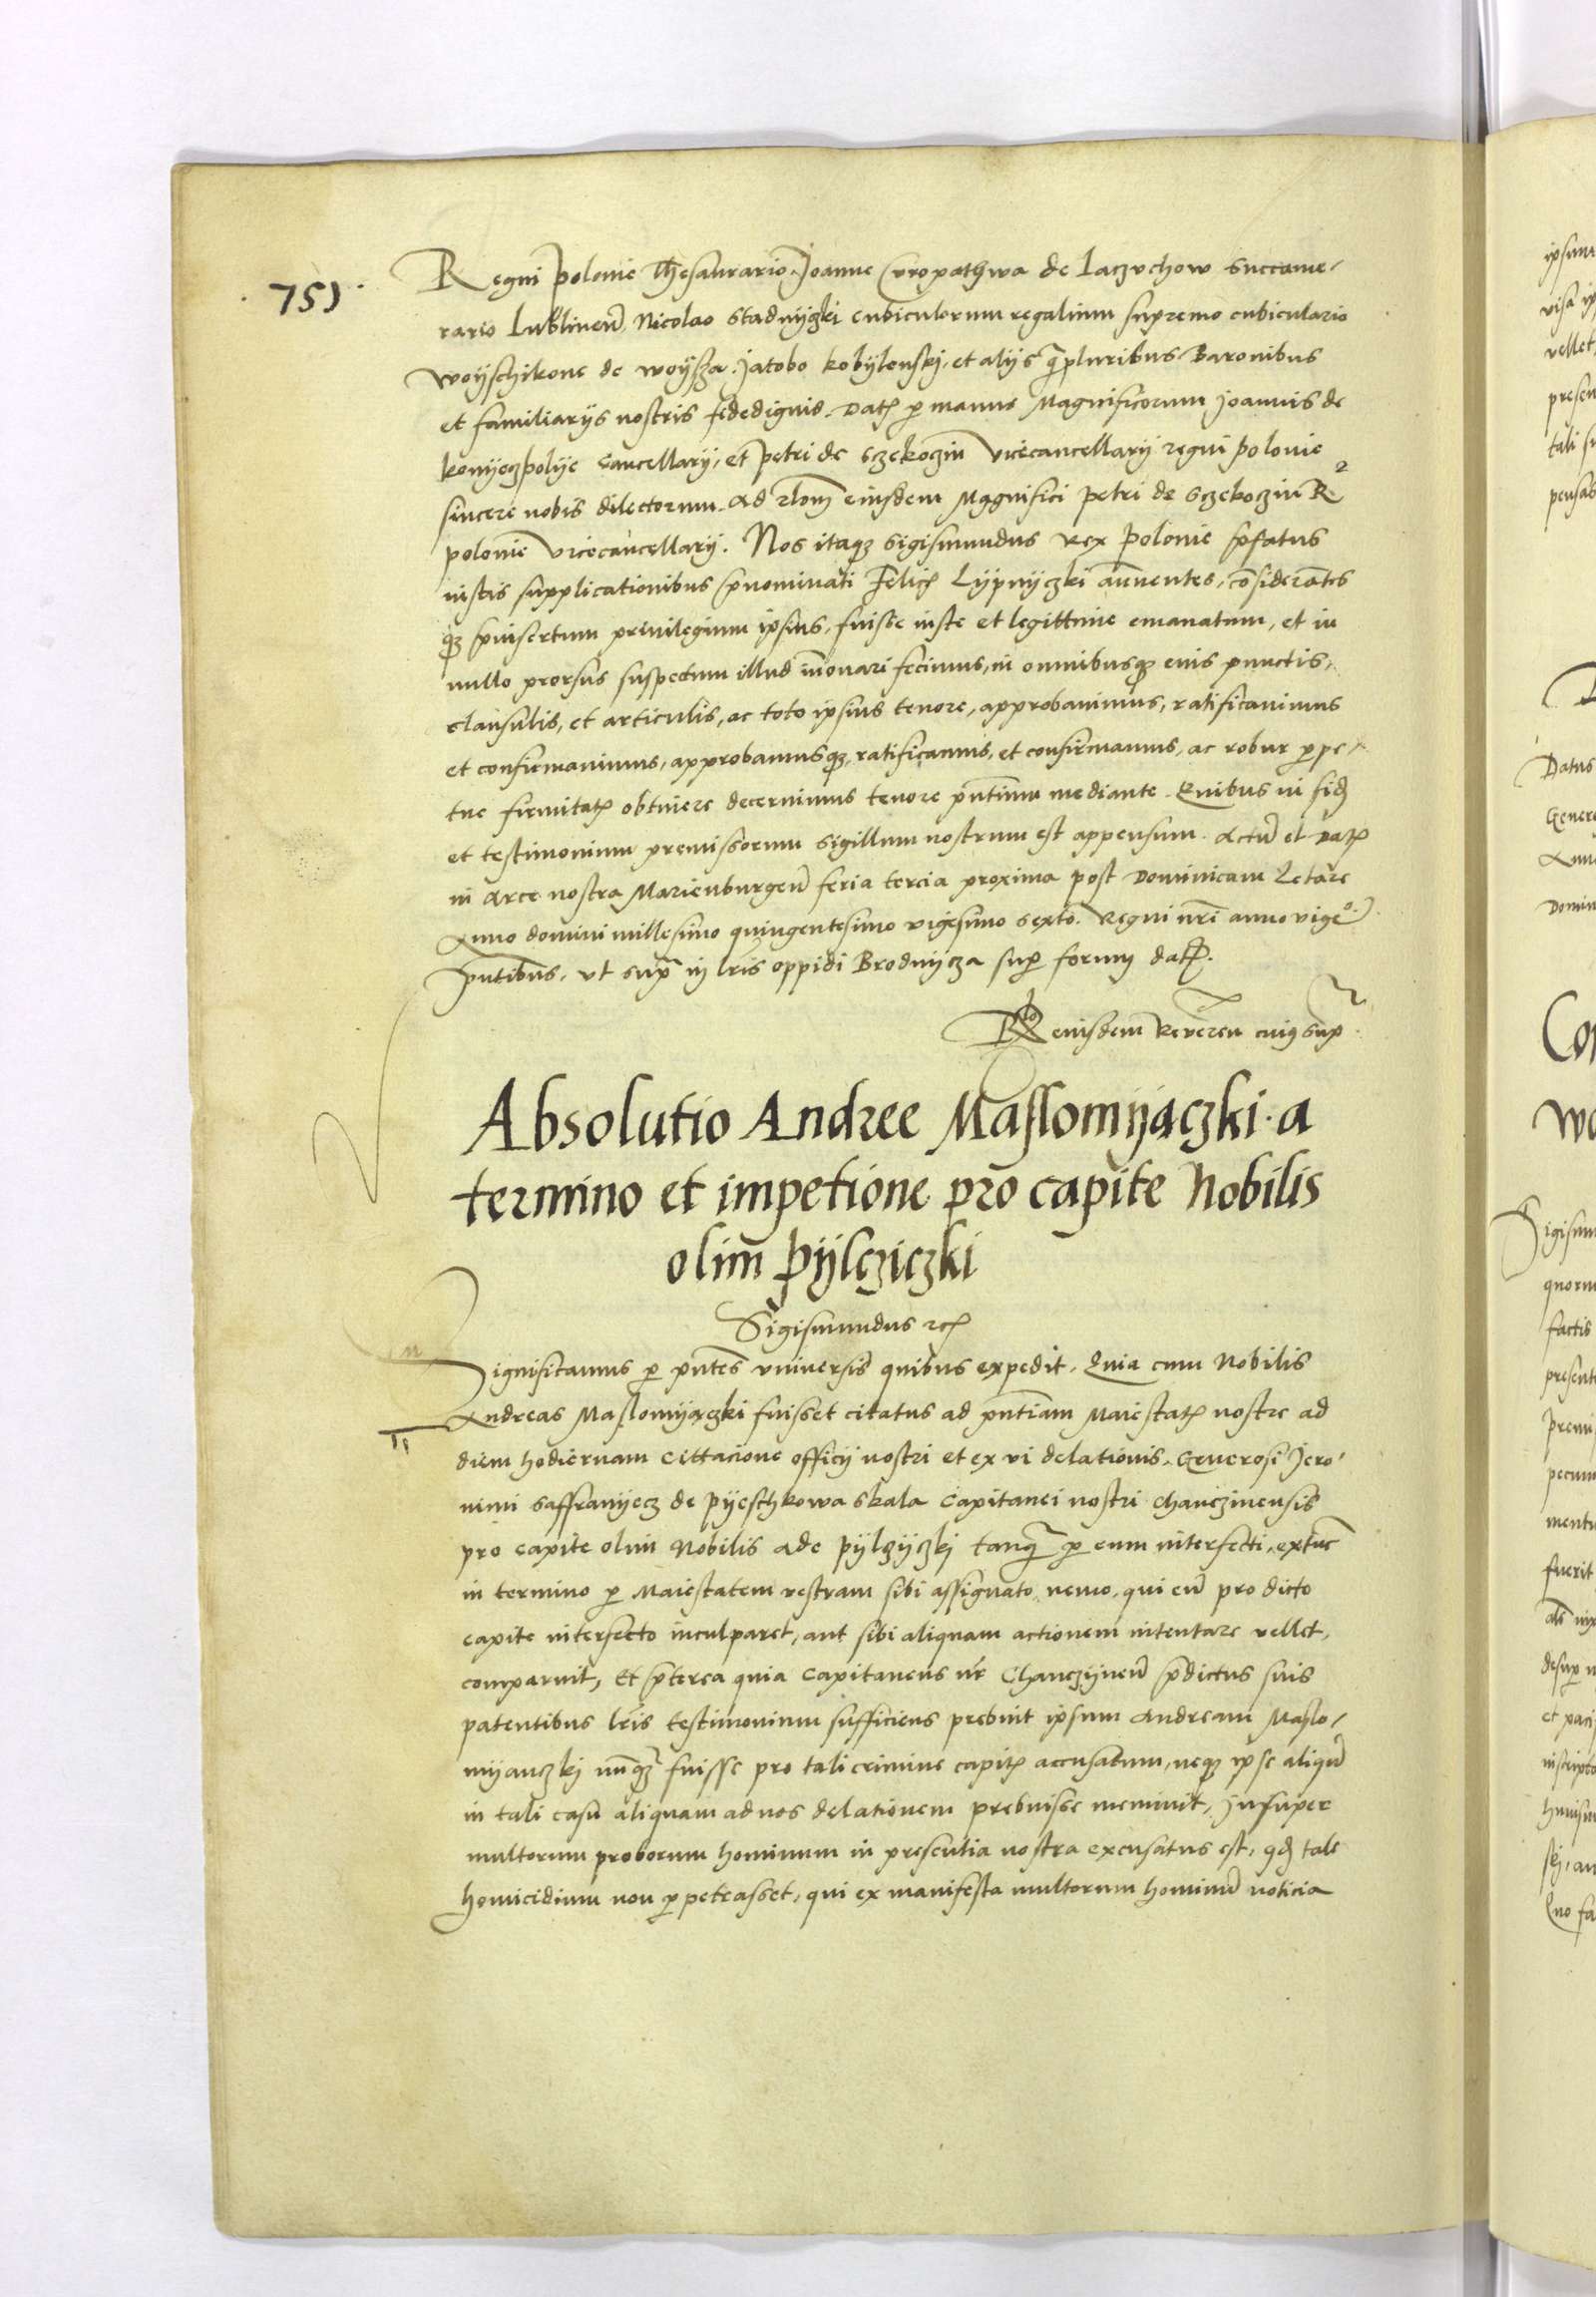 751
Regni polonie Thesaurario. Joanne Curopathwa de Laczvchow Succame-
rario Lublinen̄, Nicolao Stadnijczki cubiculorum regalium supremo cubiculario
woijschikone de woijsza. Jacobo kobijlenskj, et alijs q̄pluribus Baronibus
et familiarijs nostris fidedignis. Datȝ p̱ manus Magnificorum Joannis de
konijeczpolije Cancellarij, et petri de Sczekoczin̄ Vicecancellarij regni polonie
sincere nobis dilectorum. Ad rlom̄ eiusdem Magnifici petri de Sczekoczin̄ R
polonie Vicecancellarij. Nos itaqȝ Sigismundus Rex polonie p̄fatus
iustis supplicationibus p̄nominati Felicȝ Lijpnijczki annuentes, cōsiderātes
qȝ p̄insertum priuilegium ipsius, fuisse iuste et legittime emanatum, et in
nullo prorsus suspectum illud in̄ouari fecimus, in omnibusqȝ eius punctis,
clausulis, et articulis, ac toto ipsius tenore, approbauimus, ratificauimus
et confirmauimus, approbamusqȝ, ratificamus, et confirmamus, ac robur p̱pe-
tue firmitatȝ obtinere decernimus tenore pn̄tium mediante. Quibus in fidȝ
et testimonium premissorum Sigillum nostrum est appensum. Actū et Datȝ
in Arce nostra Marienburgen̄ feria tercia proxima post Dominicam Letare
Anno domini millesimo quingentesimo vigesimo sexto. Regni nr̄i anno vigeº.
pn̄tibus, vt supra in lr̄is oppidi Brodnijcza sup̱ forum datȝ.
Rlo eiusdem Reueren cuiꝰ sup̄
Absolutio Andree Masslomijączki a
termino et impetione pro capite Nobilis
olim pijlcziczki
Sigismundus rcȝ
Significamus p̱ pn̄tes vniuersis quibus expedit. Quia cum Nobilis
Andreas Maslomijączki fuisset citatus ad pn̄tiam Maiestatȝ nostre ad
diem hodiernam Cittacione officij nostri et ex vi delationis. Generosi Jero-
nimi Saffranijecz de pijeschkowa skala Capitanei nostri Chanczinensis
pro capite olim Nobilis Ade pijlczijczkj tanq̄ p̱ eum interfecti, extūc
in termino p̱ Maiestatem vestram sibi assignato nemo, qui eū pro dicto
capite interfecto inculparet, aut sibi aliquam actionem intentare vellet,
comparuit, Et p̄terea quia Capitaneus nr̄ Chanczijnen̄ p̄dictus suis
patentibus lr̄is testimonium sufficiens prebuit ipsum Andream Maslo-
mijanczkj nūqȝ fuisse pro tali crimine capitȝ accusatum, neqȝ ipse aliqū
in tali casu aliquam ad nos delationem prebuisse meminit, Insuper
multorum proborum hominum in presentia nostra excusatus est, qđ tale
homicidium non p̱petrasset, qui ex manifesta multorum hominū noticia